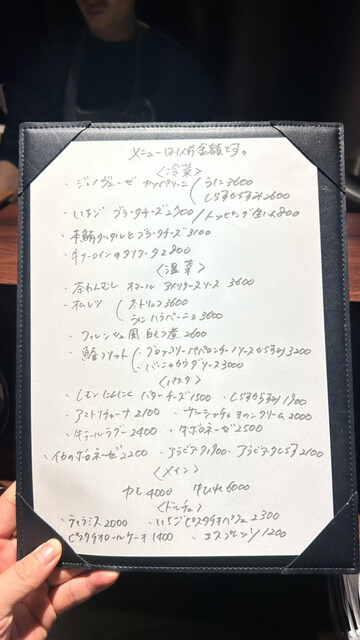 メニューは1人前金額です。
〈冷菜〉
・ジノヴェーゼ カッペリーニ うに 3600
しらすからすみ 2600
・いちご ブラータチーズ 2900 / トッピング 生ハム 800
・本鮪タルタルとブラータチーズ 3100
・牛サーロインのタリアータ 2800
〈温菜〉
・茶わんむし オマール アメリケーヌソース 3600
・オムレツ トリュフ 3600
ハラペーニョ 3600
・フィレンツェ風 白モツ煮 2600
・リゾット ブロッコリー ペペロンチーノソース からすみ 3200
バーニャカウダソース 3000
〈パスタ〉
・しそにんにく バターチーズ 1500 ・しらすからすみ 1900
・アマトリチャーナ 2100 ・サルシッチャ きのこクリーム 2000
・牛テールラグー 2400 ・牛ボロネーゼ 2500
・イカのボロネーゼ 2200 ・アラビアータ 1900 ・アラビアータしらす 2100
〈メイン〉
カモ 4000 牛ひれ 6000
〈ドルチェ〉
・ティラミス 2000 ・いちごピスタチオパフェ 2300
・ピスタチオロールケーキ 1400 ・エスプレッソ 1200